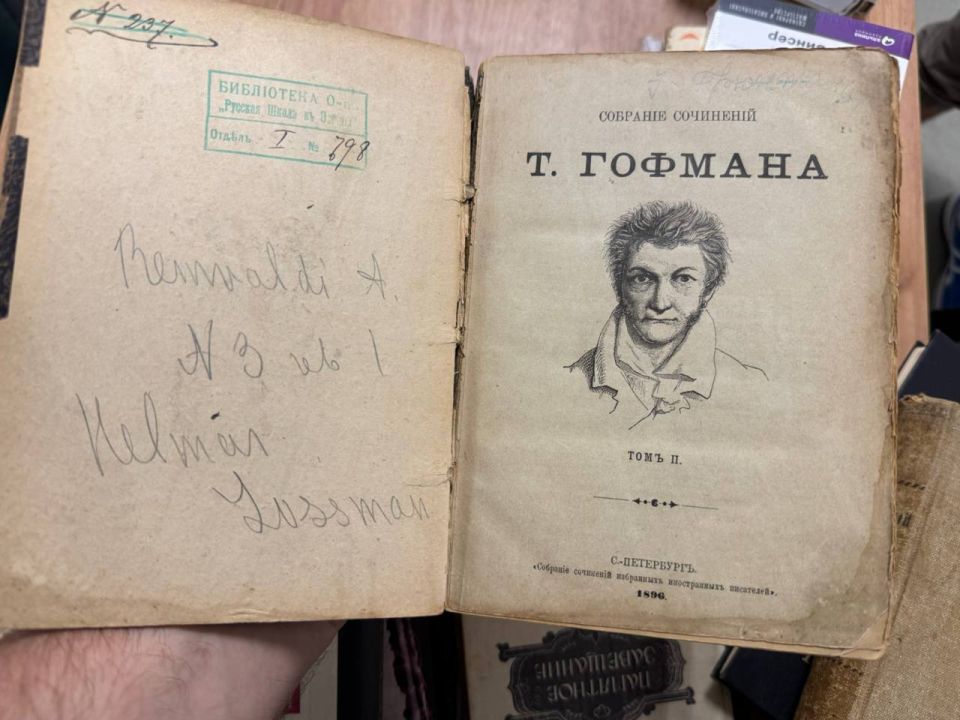 N 237.
БИБЛІОТЕКА О-
„Русская Школа въ
Отдѣлъ I № 798
A.
N 3 1
Helmar
Lossman
СОБРАНІЕ СОЧИНЕНІЙ
Т. ГОФМАНА
ТОМЪ II.
С.-ПЕТЕРБУРГЪ.
«Собраніе сочиненій избранныхъ иностранныхъ писателей».
1896.
ПАМЯТНОЕ
ЗАВЕЩАНИЕ